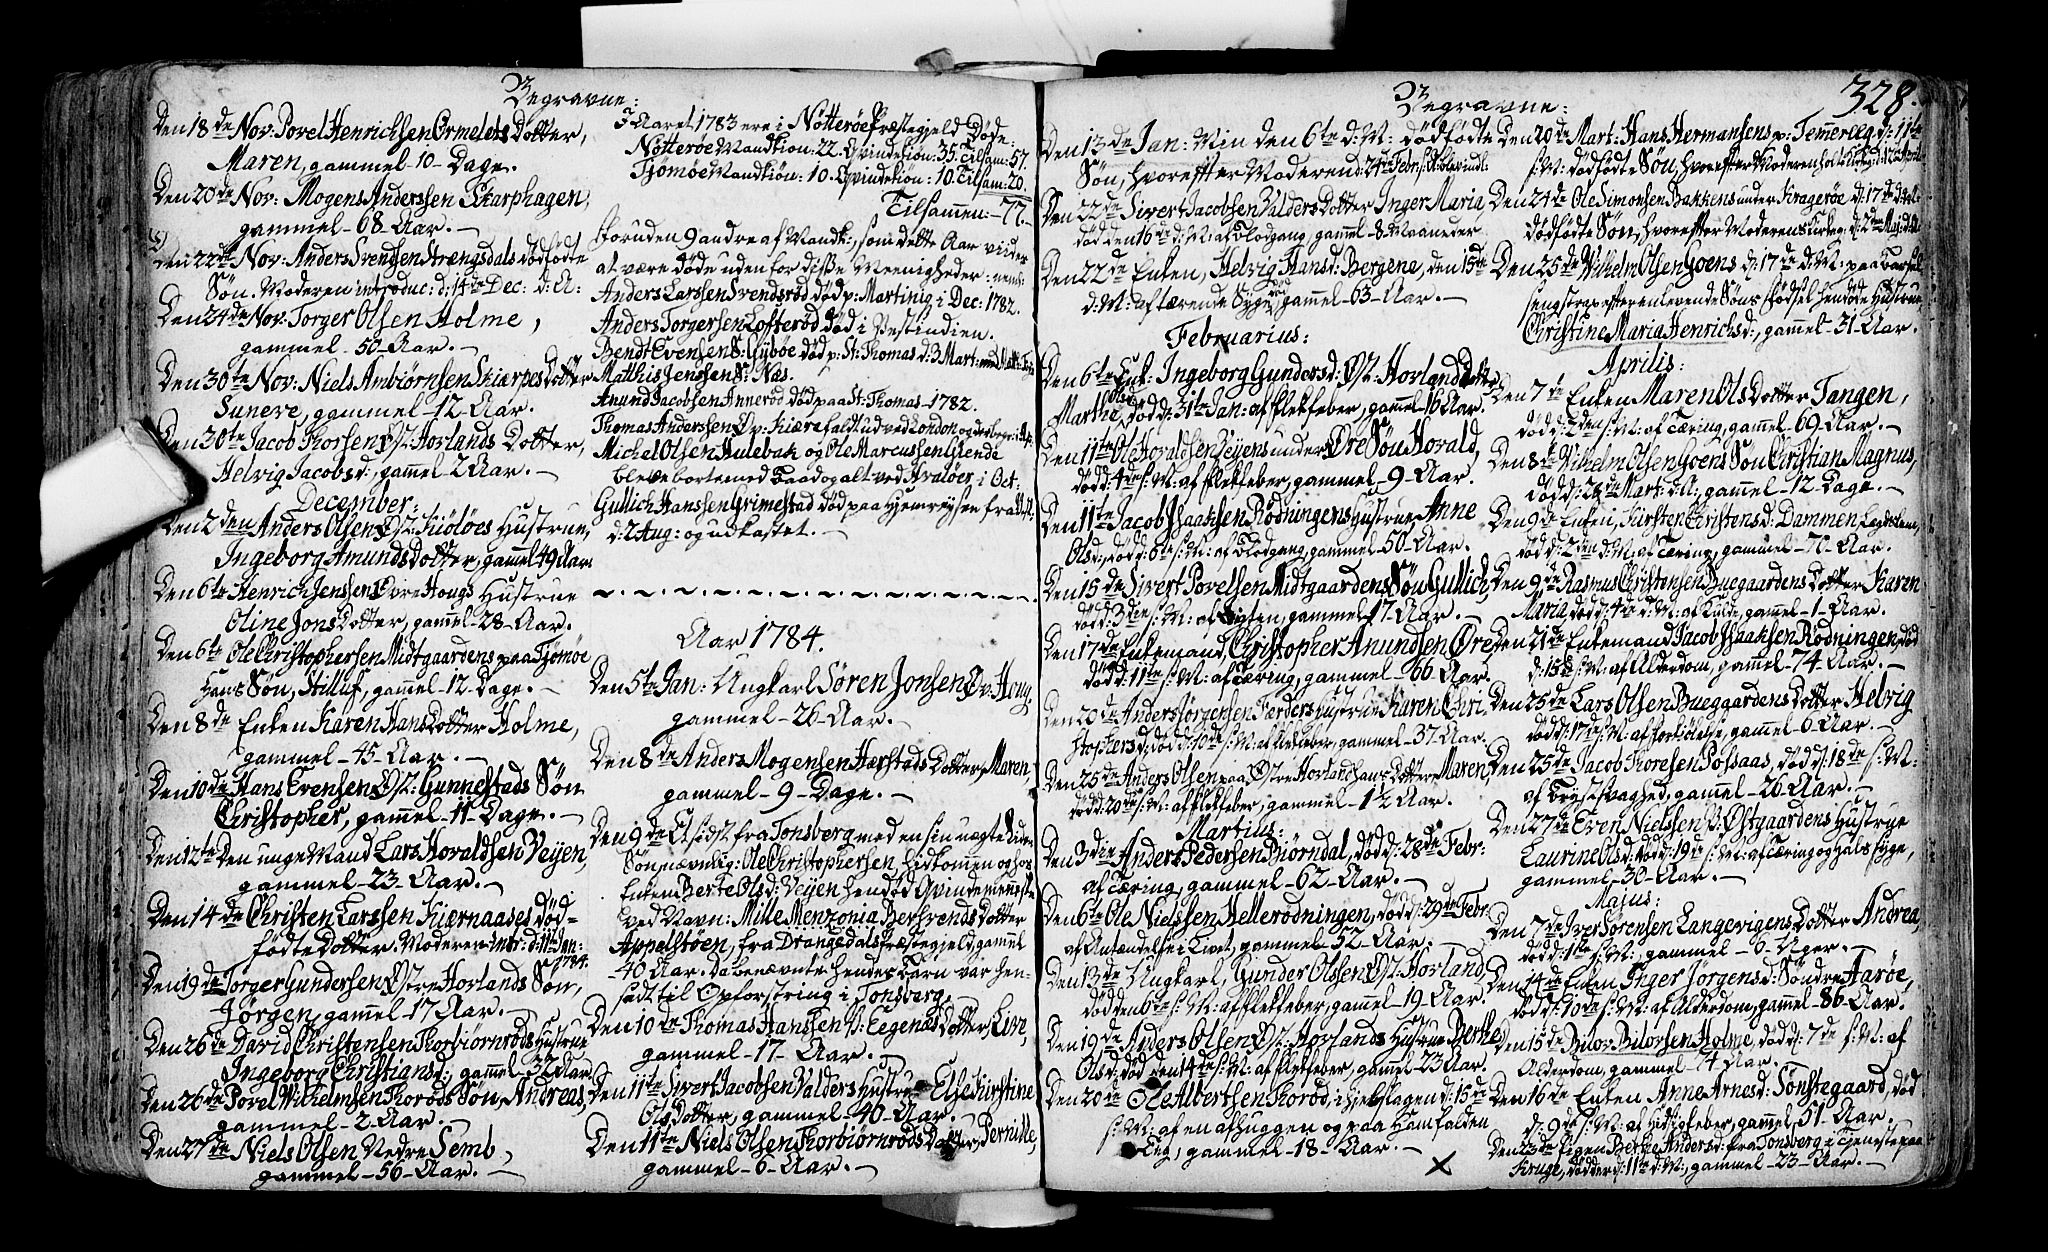 Begravne:
Den 18de Nov: Povel Henrichsen Ormelets Dotter,
Maren, gammel - 10 - Dage.
Den 20de Nov: Mogens Anderssen Skarphagen,
gammel - 68 - Aar. -
Den 22de Nov: Anders Svenssen Strængsdals dødfødte
Søn. Moderen introduc: d: 14de Dec: d: A:
Den 24de Nov: Torger Olsen Holme,
gammel - 50 - Aar. -
Den 30te Nov: Niels Ambiørnsen Skiærpes Dotter
Suneve, gammel - 12 - Aar.
Den 30te Jacob Thorsen Øst: Horlands Dotter,
Helvig Jacobsd:, gammel 2 Aar. -
December:
Den 2den Anders Olsen Øst: Kiøløes Hustrue,
Ingeborg Amunds Dotter, gamel 49 Aar.
Den 6te Henrich Jenssen Øvre Hougs Hustrue
Oline Jons Dotter, gamel - 28 - Aar.
Den 6te Ole Christophersen Midtgaardens paa Tjømøe
Hans Søn, Stilluf, gamel - 12 - Dage. -
Den 8de Enken Karen Hans Dotter Holme,
gammel - 45 - Aar. -
Den 10de Hans Evensen Øst: Gunnestads Søn
Christopher, gammel - 11 - Dage. -
Den 12te Den unge Mand Lars Hovaldsen Veyen,
gammel - 23 - Aar. -
Den 14de Christen Larssen Kiernaases død-
fødte Dotter. Moderen intr: d: 11te Jan:
1784.
Den 19de Torger Gundersen Østre Horlands Søn,
Jørgen, gamel - 17 Aar. -
Den 26de David Christensen Thorbiørnrøds Hustrue
Ingeborg Christians d:, gamel - 32 Aar.
Den 26de Povel Wilhelmsen Thorøds Søn, Andreas,
gammel - 2 - Aar. -
Den 27de Niels Olsen Nedre Semb,
gammel - 56 - Aar. -
I Aaret 1783 ere i Nøtterøe Præstegjeld Døde:
Nøtterøe Mandkiøn: 22. Qvindekiøn: 35. Tilsam: 57.
Tjømøe Mandkiøn: 10. Qvindekiøn: 10. Tilsam: 20.
Tilsammen: - 77. -
foruden 9 andre af Mandk:, som dette Aar vides
at være døde uden for disse Meenigheder: neml:
Anders Larssen Svendsrød død p: Martiniq i Dec: 1782.
Anders Torgersen Lofterød død i Vestindien.
Bendt Evensen S: Gybøe død p: St: Thomas d: 3 Mart:
Matthis Jenssen S: Næs.
Anund Jacobsen Annerød død paa St: Thomas - 1782.
Thomas Anderssen Øv: Kiæra faldt ud ved London og der begr: i
Michel Olsen Hulebak og Ole Marcussen Glende
bleve borte med Baad og alt ved Hvaløer, i Oct:
Gullich Hanssen Grimestad død paa Hjemreysen fra
d: 2 Aug: og udkastet. -
Aar 1784.
Den 5te Jan: Ungkarl Søren Jonsen Øv: Houg,
gammel - 26 - Aar. -
Den 8de Anders Mogensen Hærstads Dotter, Maren,
gammel - 9 - Dage. -
Den 9de Et sidst fra Tonsberg med en sin uægte
Søn nævnlig: Ole Christophersen, hidkomen og hos
Enken Berte Olsd: Veyen hendød Qvindemenneske
ved Navn: Mille Menzonia Berhrends Dotter
Appelstøen, fra Drangedals Præstegjeld gamel
40 Aar. Da benævnte hendes Barn var hen-
sadt til Opfostring i Tonsberg.
Den 10de Thomas Hanssen V: Eegenes Dotter, Live,
gammel - 17 - Aar. -
Den 11te Sivert Jacobsen Valders Hustrue Else Kirstine
Ols Dotter, gammel - 40 - Aar. -
Den 11te Niels Olsen Thorbiørnrøds Dotter, Pernille,
gammel - 6 - Aar. -
Begravne:
328.
Den 13de Jan: Min den 6te d: M: dødfødte
Søn, hvorefter Moderen d: 24de Febr:
Den 22de Sivert Jacobsen Valders Dotter Inger Maria,
død den 16te d: M: af Blodgang, gammel - 8 - Maaneder
Den 22de Enken, Helvig Hansd: Bergene, den 15de
d: M: af tærende Syge død, gammel - 63 - Aar. -
Februarius:
Den 6te Enk: Ingeborg Gundersd: Øst: Horland Dotter
Marthe, død d: 31te Jan: af Flekfeber, gammel - 16 Aar.
Den 11te Ole Hovaldsen Veyens under Øre Søn Hovald,
død d: 4de s: M: af Flekfeber, gammel - 9 - Aar.
Den 11te Jacob Isaaksen Rødningens Hustrue Anne
Olsd:, død d: 6te s: M: af Blodgang, gammel - 50 - Aar.
Den 15de Sivert Povelsen Midtgaardens Søn Gullich,
død d: 3die s: M: af Gigten, gammel - 17 - Aar. -
Den 17de Enkemand, Christopher Anundsen Øre,
død d: 11te s: M: af Tæring, gammel - 66 - Aar.
Den 20de Anders Jørgensen Færders Hustrue Karen Chri-
stophers d: død d: 10de s: M: af Flekfeber, gammel - 37 Aar.
Den 25de Anders Olsen paa Østre Horland hans Dotter Maren,
død d: 20de s: M: af Flekfeber, gammel - 1 1/2 Aar.
Martius:
Den 3die Anders Pedersen Biørndal, død d: 28de Febr:
af Tæring, gammel - 62 - Aar. -
Den 6te Ole Nielssen Hellerødningen, død d: 29de Febr:
af Antændelse i Livet, gammel - 52 - Aar. -
Den 13de Ungkarl, Gunder Olssen Øst: Horland
død den 6te s: M: af Flekfeber, gamel - 19 - Aar.
Den 19de Anders Olsen Øst: Horlands Hustrue Berthe
Olsd: død den 14de s: M: af Flekfeber, gammel - 23 Aar.
Den 20de Ole Albertsen Thorød, ihjelslagen d: 15de
s: M: af en afhuggen og paa Ham falden
Eeg, gammel - 18 - Aar. -
Den 20de Mart: Hans Hermansens p: Temmerleg. d: 11te
s: M: dødfødte Søn, hvorefter Moderen holt Kirkeg: d: 12te April
Den 24de Ole Simonsen Bakkens under Kragerøe d: 17de
dødfødte Søn, hvorefter Moderens Kirkeg: d: 2den Maj:
Den 25de Wilhelm Olsen Goens d: 17de d: M: paa Barsel-
seng strax efter en levende Søns Fødsel hendøde Hustrue,
Christine Maria Henrichsd:, gammel - 31 - Aar.
Aprilis:
Den 7de Enken Maren Ols Dotter Tangen,
død d: 2den s: M: af Tæring, gammel 69 Aar. -
Den 8de Wilhelm Olsen Goens Søn Christian Magnus,
død d: 24de Mart: d: A:, gammel - 12 - Dage. -
Den 9de Enken, Kirsten Christensd: Dammen, Legdslem,
død d: 2den d: M: af Tæring, gammel - 70 - Aar.
Den 9de Rasmus Christensen Buegaardens Dotter Karen
Maria, død d: 4de d: M: af Kinde, gammel - 1 - Aar.
Den 21de Enkemand Jacob Isaaksen Rødningen, død
d: 15de s: M: af Alderdom, gammel - 74 - Aar. -
Den 25de Lars Olsen Bueggardens Dotter Helvig
død d: 17de s: M: af Forkiølelse, gammel - 6 - Aar. -
Den 25de Jacob Thoresen Possaas, død d: 18de s: M:
af Brystsvaghed, gammel - 26 Aar. -
Den 27de Even Nielssen V: Østgaardens Hustrue
Laurine Olsd: død d: 19de s: M: af Tæring og Hals Syge,
gammel - 30 - Aar. -
Majus:
Den 7de Iver Sørensen Langevigens Dotter Andrea,
død d: 1ste s: M:, gammel - 6 - Uger. -
Den 14de Enken Inger Jørgensd: Søndre Aarøe,
død d: 10de s: M: af Alderdom, gammel - 86 - Aar.
Den 15de Bilov Bilovsen Holme, død d: 7de s: M: af
Alderdom, gammel - 74 Aar. -
Den 16de Enken Anne Arnesd: Sønstegaard, død
d: 9de s: M: af Hidsigfeber, gammel - 51 - Aar. -
Den 23de Pigen Berthe Andersd: fra Tonsberg i Tjeneste paa
Kruge, død der d: 11te d: M:, gammel - 23 - Aar. -